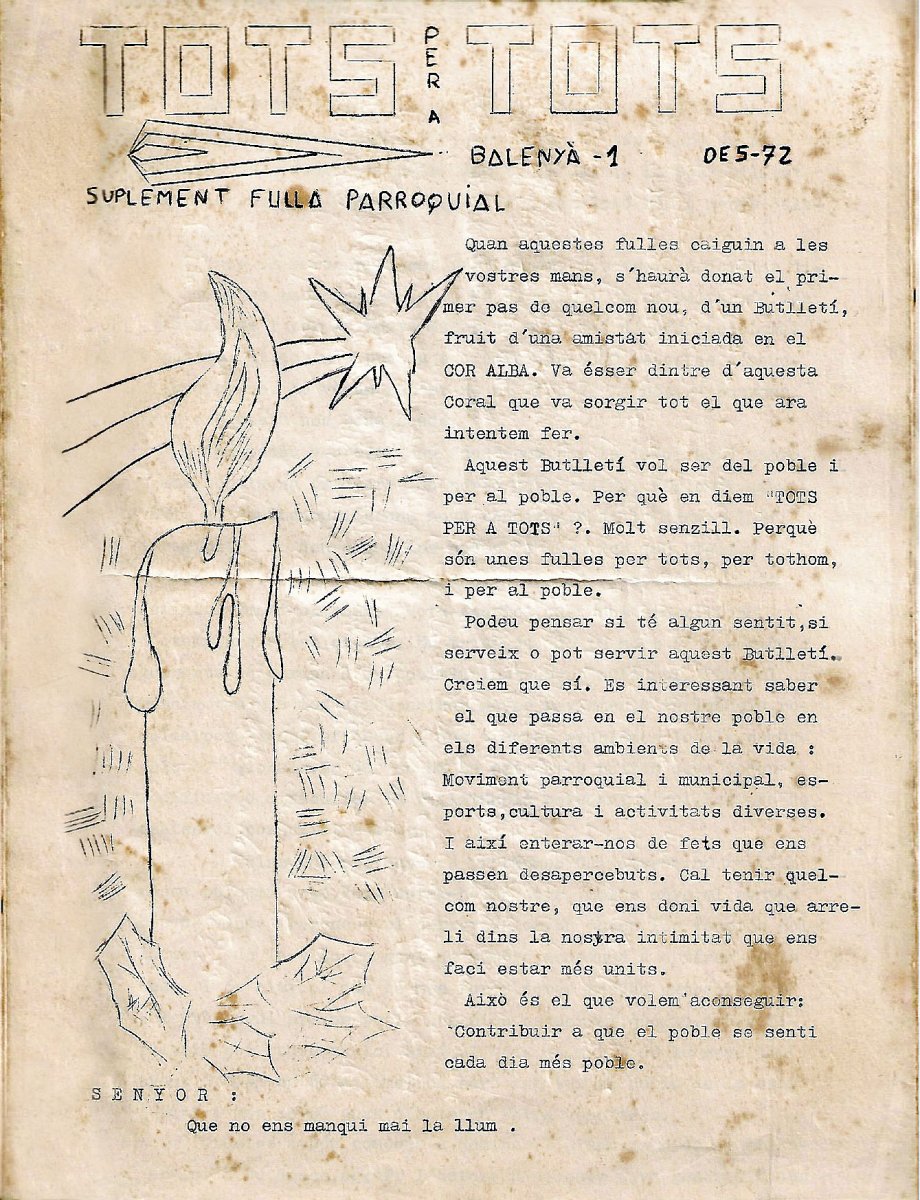 TOTS PER A TOTS
BALENYÀ -1 DES-72
SUPLEMENT FULLA PARROQUIAL
Quan aquestes fulles caiguin a les
vostres mans, s'haurà donat el pri-
mer pas de quelcom nou, d'un Butlletí,
fruit d'una amistàt iniciada en el
COR ALBA. Va ésser dintre d'aquesta
Coral que va sorgir tot el que ara
intentem fer.
Aquest Butlletí vol ser del poble i
per al poble. Per què en diem "TOTS
PER A TOTS" ?. Molt senzill. Perquè
són unes fulles per tots, per tothom,
i per al poble.
Podeu pensar si té algun sentit,si
serveix o pot servir aquest Butlletí.
Creiem que sí. Es interessant saber
el que passa en el nostre poble en
els diferents ambients de la vida :
Moviment parroquial i municipal, es-
ports,cultura i activitats diverses.
I així enterar-nos de fets que ens
passen desapercebuts. Cal tenir quel-
com nostre, que ens doni vida que arre-
li dins la nostra intimitat que ens
faci estar més units.
Això és el que volem aconseguir:
Contribuir a que el poble se senti
cada dia més poble.
S E N Y O R :
Que no ens manqui mai la llum .